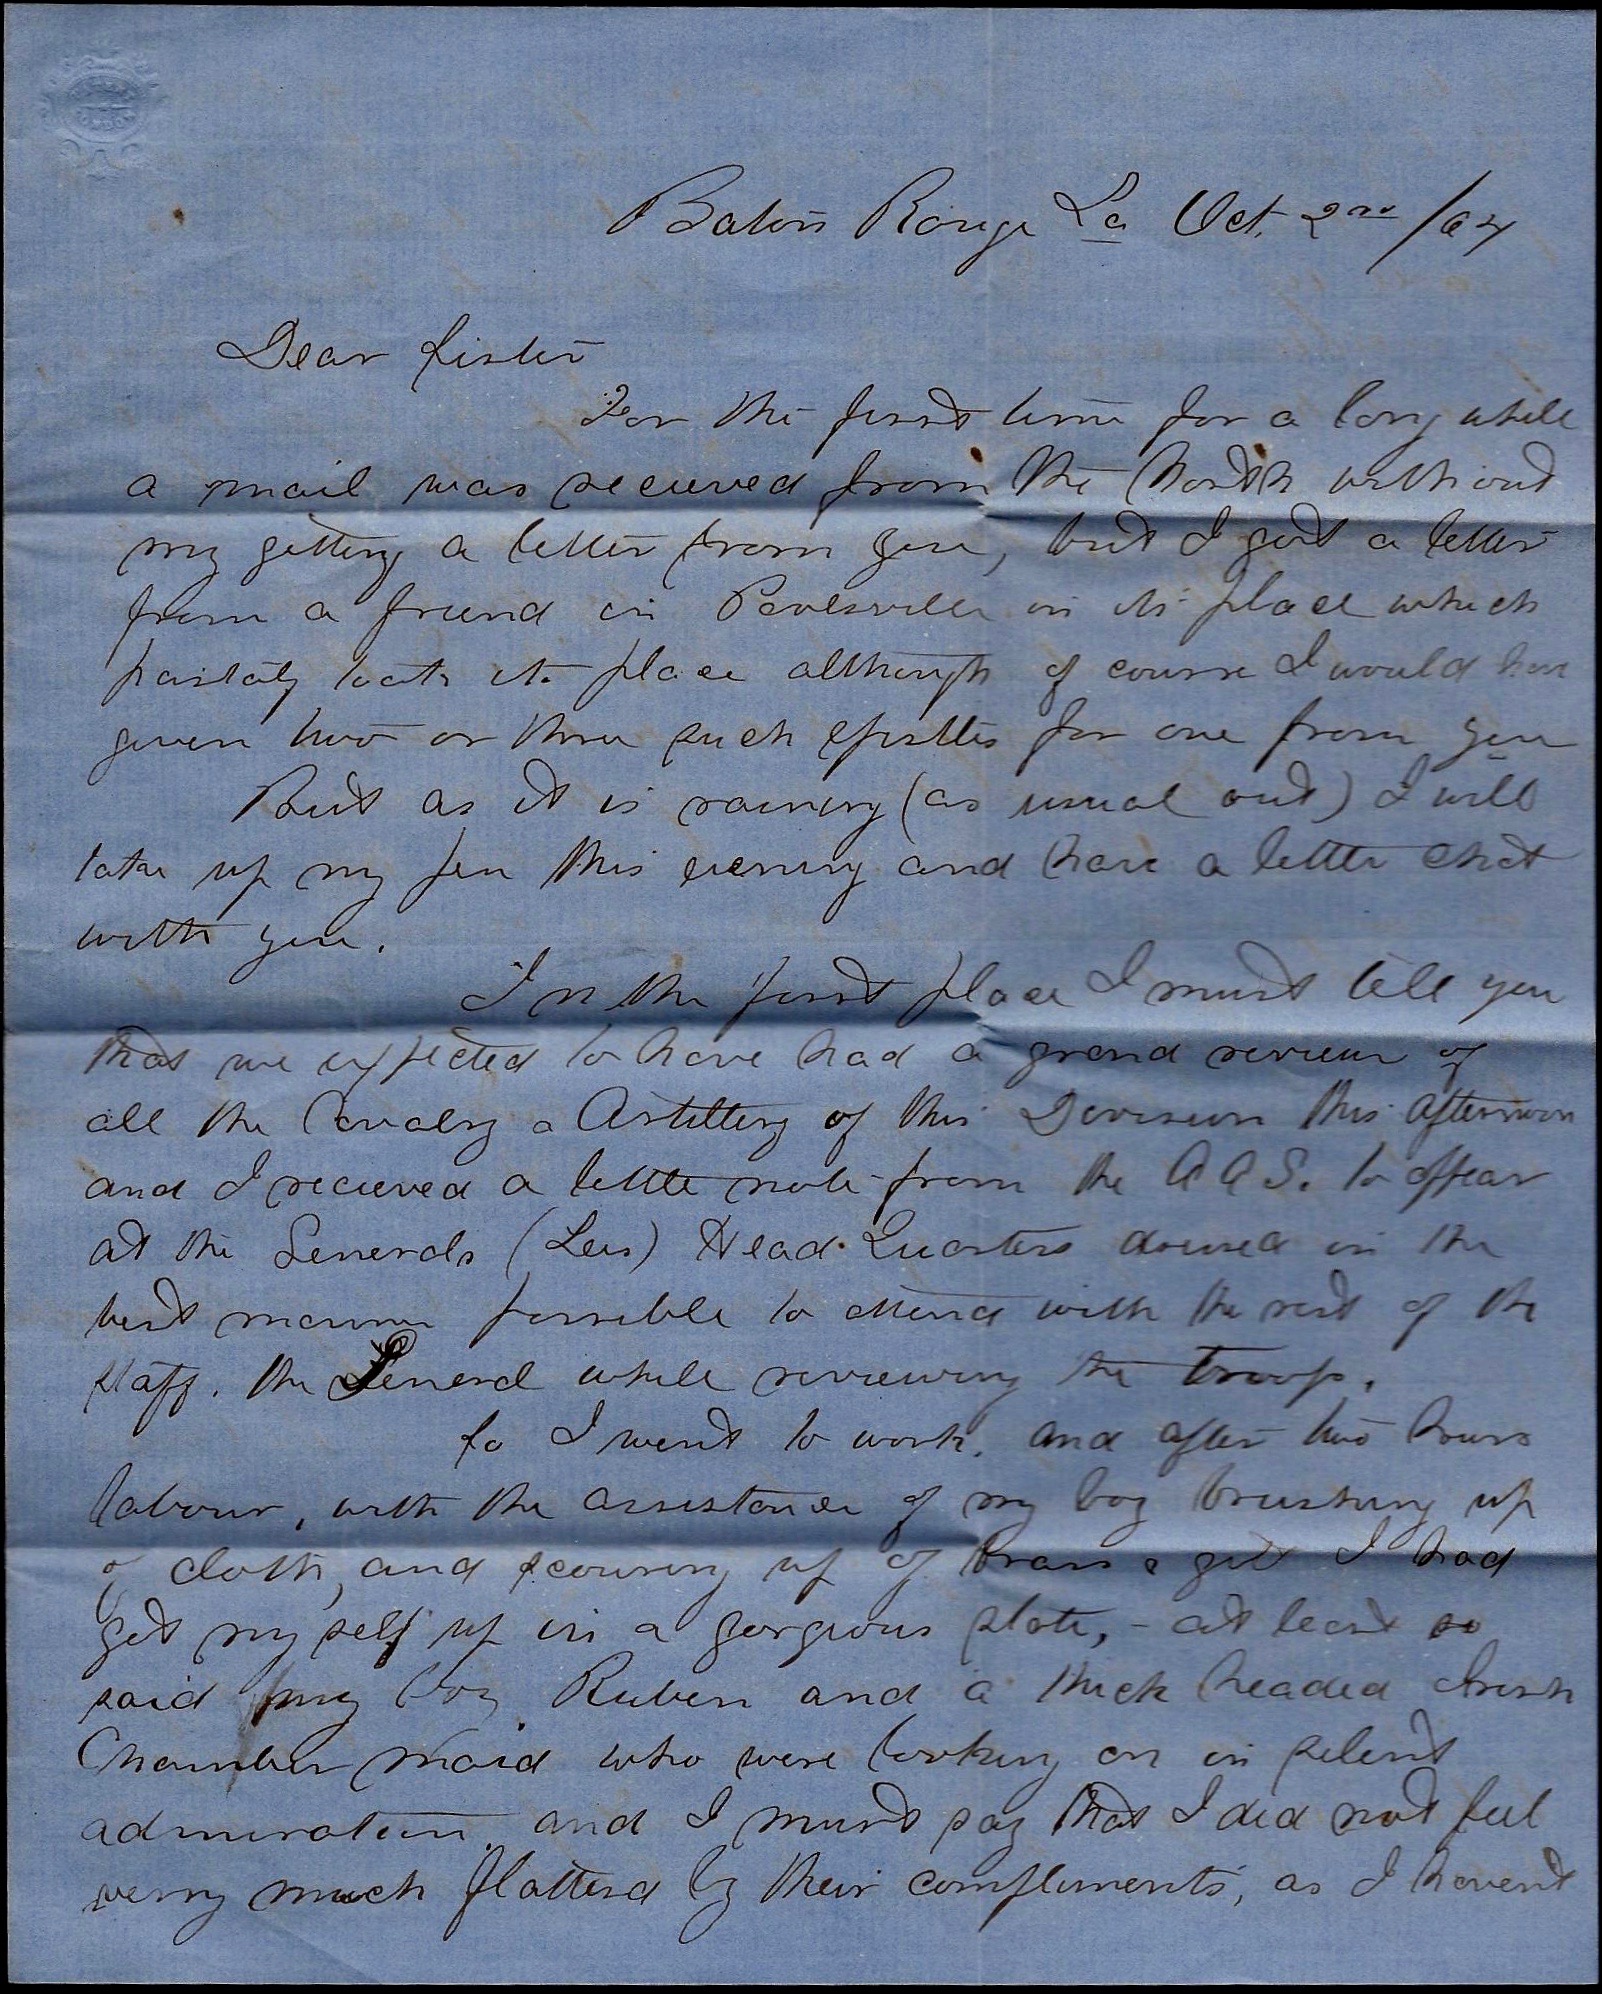 Baton Rouge La Oct. 2nd /64
Dear Sister
For the first time for a long while
a mail was recieved from the North without
my getting a letter from you, but I got a letter
from a friend in in its place which
partialy took its place although of course I would have
given two or three such epistles for one from you
But as it is raining (as usual out) I will
take up my pen this evening and have a little chat
with you.
In the first place I must tell you
that we expected to have had a grand review of
all the Cavalry & Artillery of this Division this afternoon
and I recieved a little note from the A A G. to appear
at the Generals (Lees) Head Quarters dressed in the
best manner possible to attend with the rest of the
staff. the General while reviewing the troops.
So I went to work. and after two hours
labour, with the assistance of my boy brushing up
of cloth, and scouring up of brass & gilt I had
got my self up in a gorgious state, - at least so
said my boy Ruben and a thick headed Irish
Chamber maid who were looking on in silent
admiration. and I must say that I did not feel
verry much flatterd by their compliments, as I havent